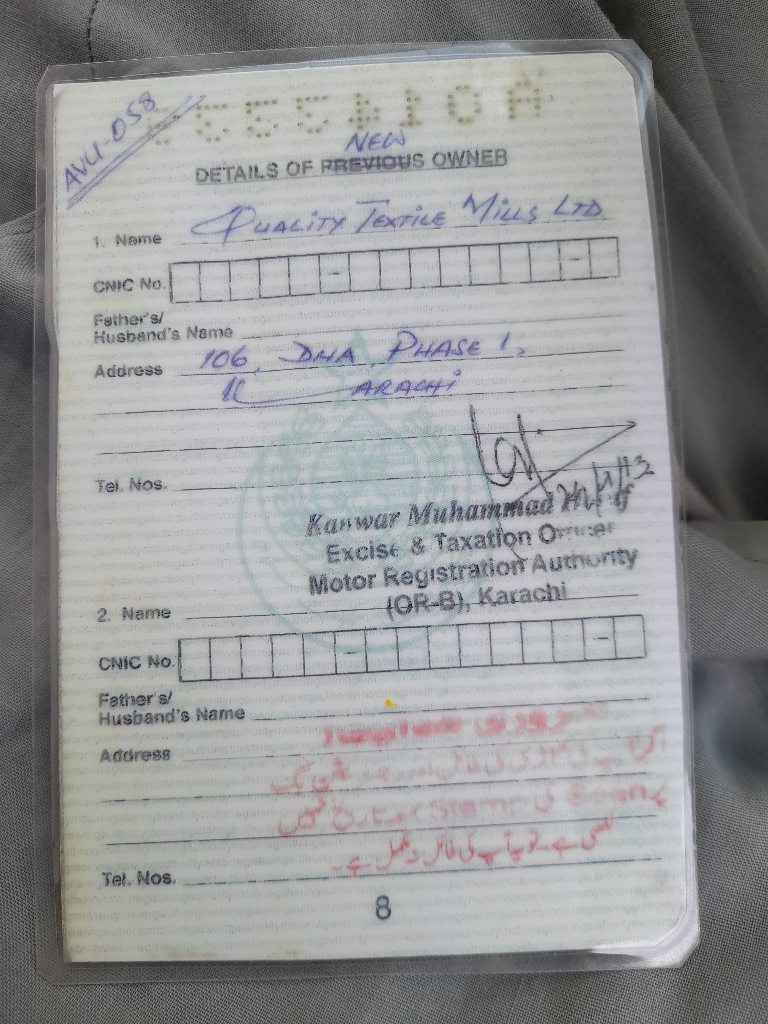 AVU-058
NEW
DETAILS OF PREVIOUS OWNER
1. Name QUALITY TEXTILE MILLS LTD
CNIC No. - -
Father's/
Husband's Name
Address 106, DHA, PHASE 1,
KARACHI
Tel. Nos.
Kanwar Muhammad
Excise & Taxation Officer
Motor Registration Authority
(OR-B), Karachi
2. Name
CNIC No. - -
Father's/
Husband's Name
Address
کی فائل اور
Scan کی Stamp
ہے تو آپ کی فائل مکمل ہے۔
Tel. Nos.
8